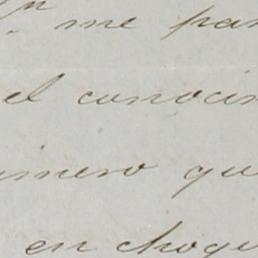 me par
el conocim
imero que
en choqu